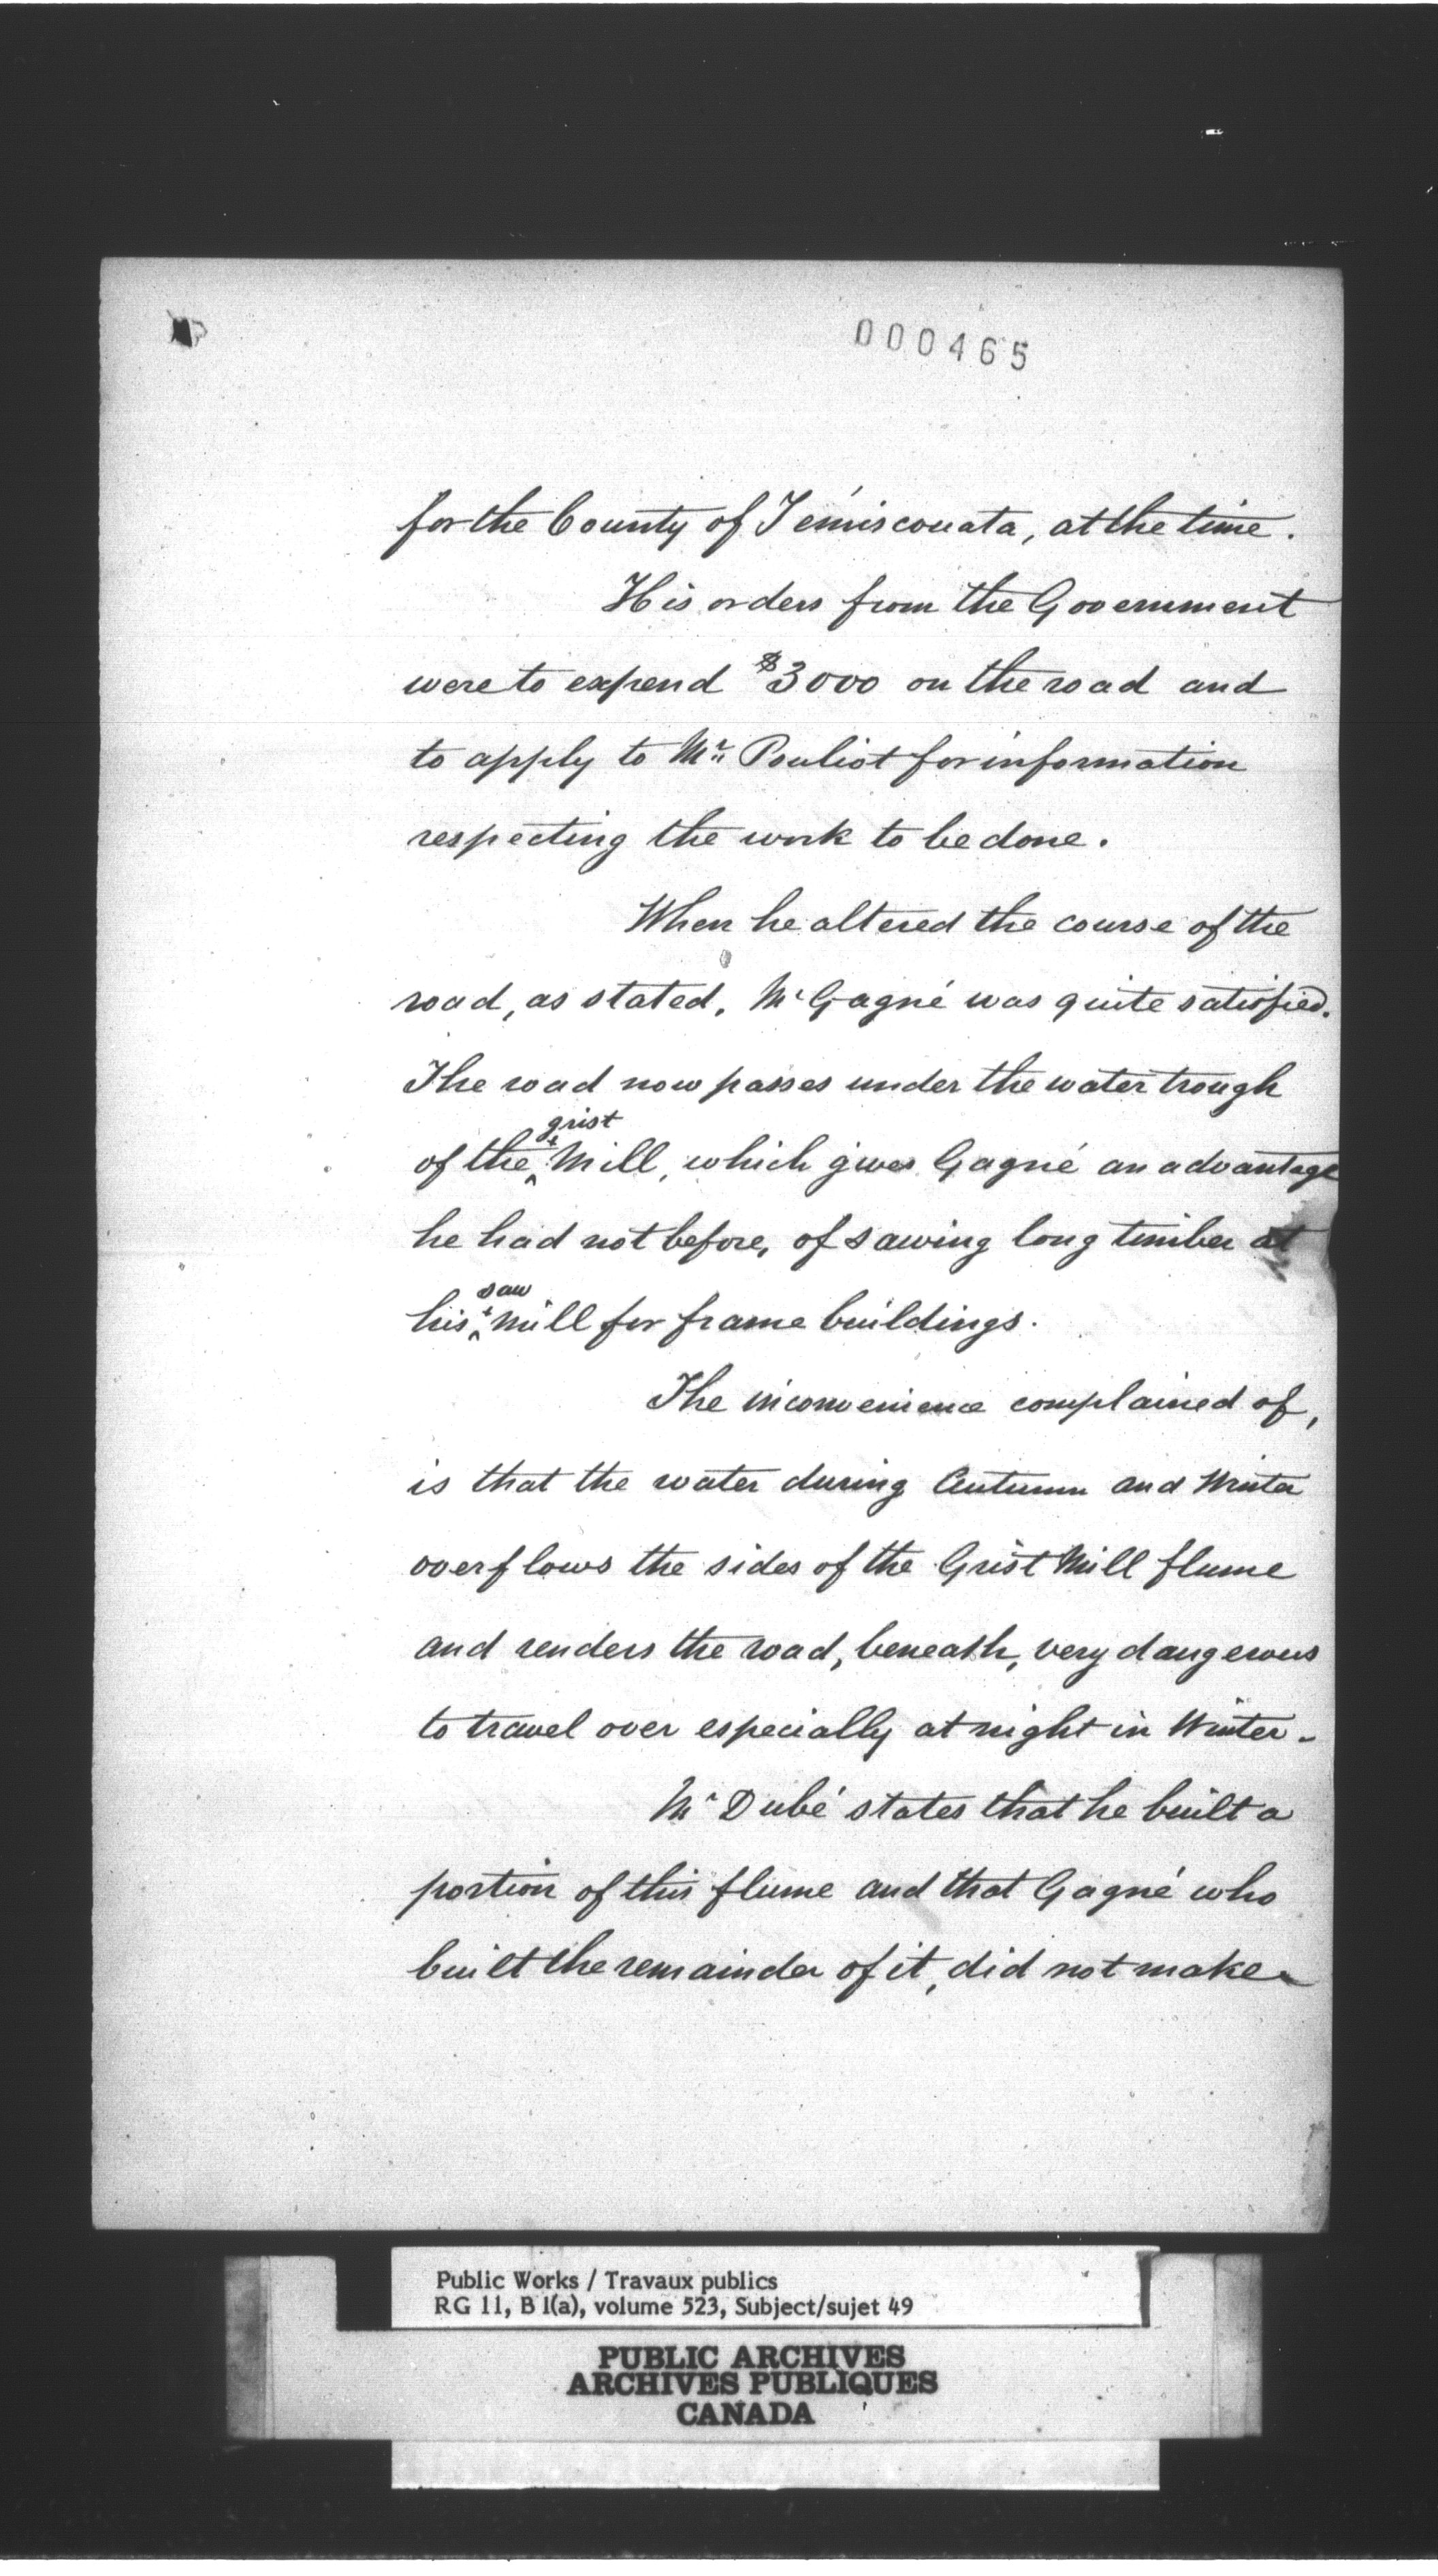 000465
for the County of Témiscouata, at the time.
His orders from the Government
were to expend $3000 on the road and
to apply to Mr. Pouliot for information
respecting the work to be done.
When he altered the course of the
road, as stated, Mr Gagné was quite satisfied.
The road now passes under the water trough
grist
of the Mill, which gives Gagné an advantage
he had not before, of sawing long timber at
saw
his mill for frame buildings.
The inconvenience complained of,
is that the water during Autumn and Winter
overflows the sides of the Grist Mill flume
and renders the road, beneath, very dangerous
to travel over especially at night in Winter.
Mr Dubé states that he built a
portion of this flume and that Gagné who
built the remainder of it, did not make
Public Works / Travaux publics
RG 11, B 1(a), volume 523, Subject/sujet 49
PUBLIC ARCHIVES
ARCHIVES PUBLIQUES
CANADA